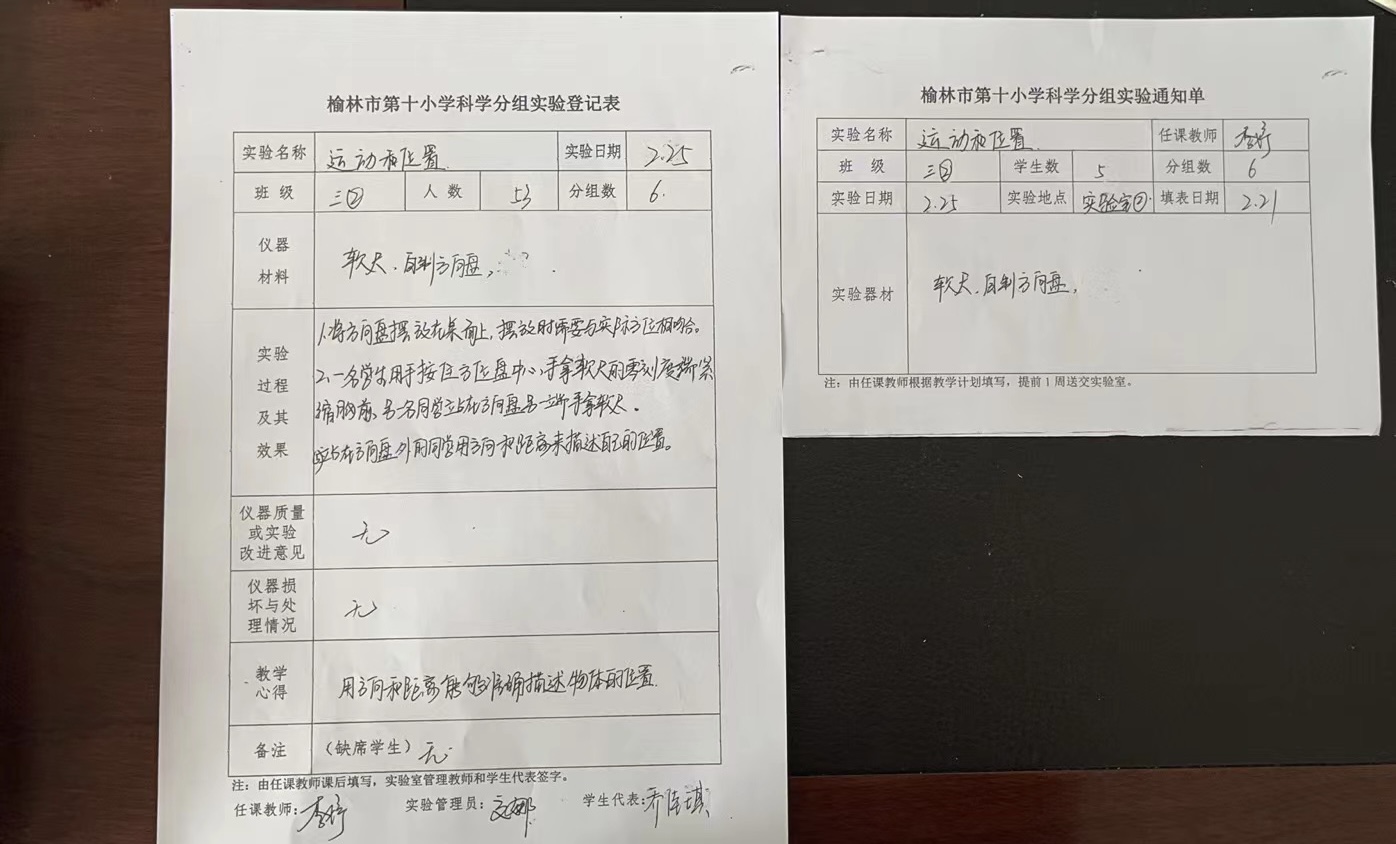 榆林市第十小学科学分组实验登记表
实验名称 运动和位置 实验日期 2.25
班 级 三② 人 数 53 分组数 6.
仪器
材料
软尺、自制方向盘,
实验
过程
及其
效果
1、将方向盘摆放在桌面上,摆放时需要与实际方位相吻合。
2、一名学生用手按住方位盘中心,手拿软尺的零刻度
胸前、另一名同学站在方向盘另一 手拿软尺。
站在方向盘外的同学用方向和距离来描述自己的位置。
仪器质量
或实验
改进意见
无
仪器损
坏与处
理情况
无
教学
心得
用方向和距离能够准确描述物体的位置.
备注 (缺席学生) 无.
注:由任课教师课后填写,实验室管理教师和学生代表签字。
任课教师: 李婷 实验管理员: 学生代表:
榆林市第十小学科学分组实验通知单
实验名称 运动和位置 任课教师 李婷
班 级 三② 学生数 5 分组数 6
实验日期 2.25 实验地点 实验室②. 填表日期 2.21
实验器材 软尺、自制方向盘,
注:由任课教师根据教学计划填写,提前1周送交实验室。